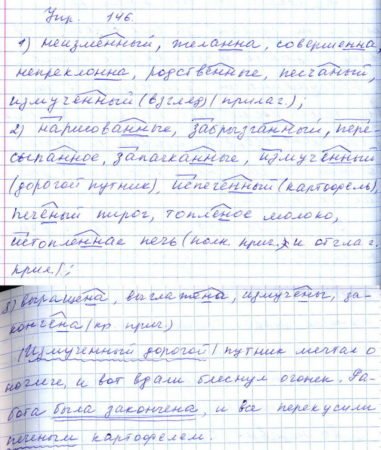 Упр 146.
1) неизменный, желанна, совершенна,
непреклонна, родственные, песчаный,
измученный (взгляд) (прилаг.);
2) нарисованные, забрызганный, пере-
сыпанное, запачканные, измученный
(дорогой путник), испеченный (картофель),
печёный пирог, топлёное молоко,
истопленная печь (полн. прич. и отглаг.
прил.);
3) выращена, выглажена, измучены, за-
кончена (кр. прич.)
(Измученный дорогой) путник мечтал о
ночлеге, и вот вдали блеснул огонек. Ра-
бота была закончена, и все перекусили
печеным картофелем.